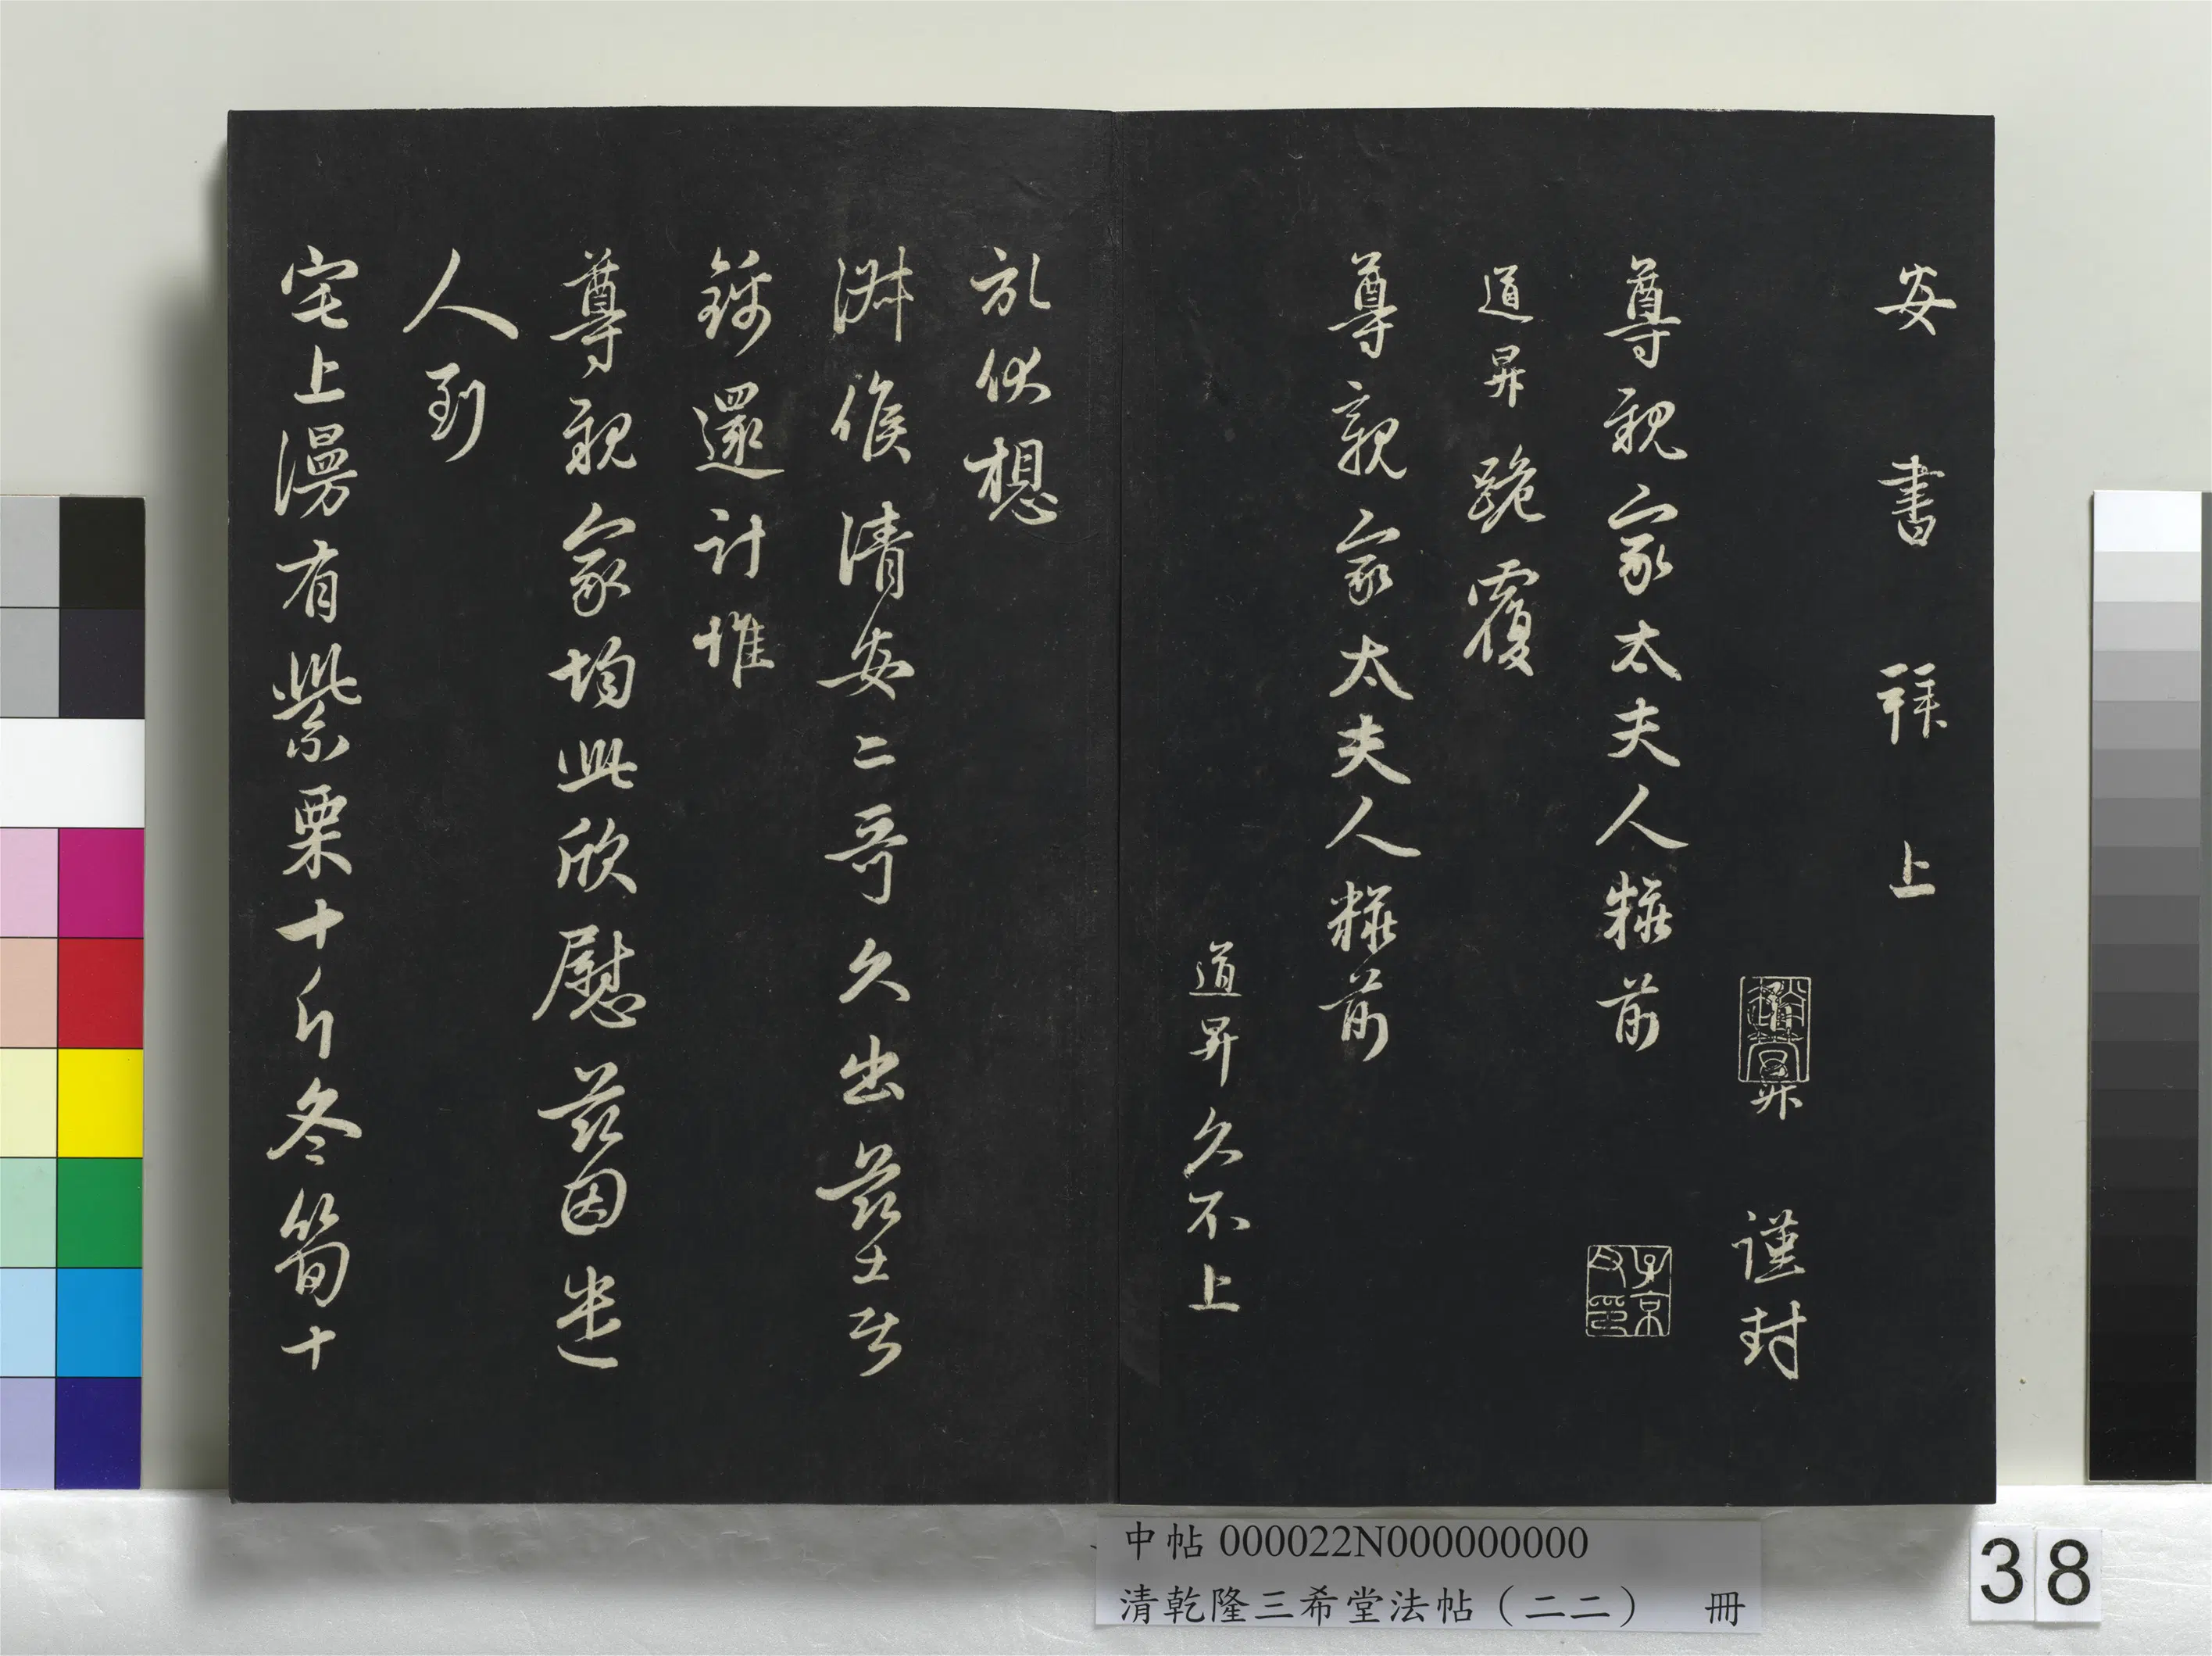 安書拜上
趙管 昇 謹封
尊親家太夫人粧前
子京父印
道昇跪覆
尊親家太夫人粧前
道昇久不上
伏想
淑候清安二哥久出茲
錦還計惟
尊親家均此欣慰茲因遣
人到
宅上漫有紫栗十斤冬筍十
中帖 000022N000000000
清乾隆三希堂法帖（二二） 冊
38